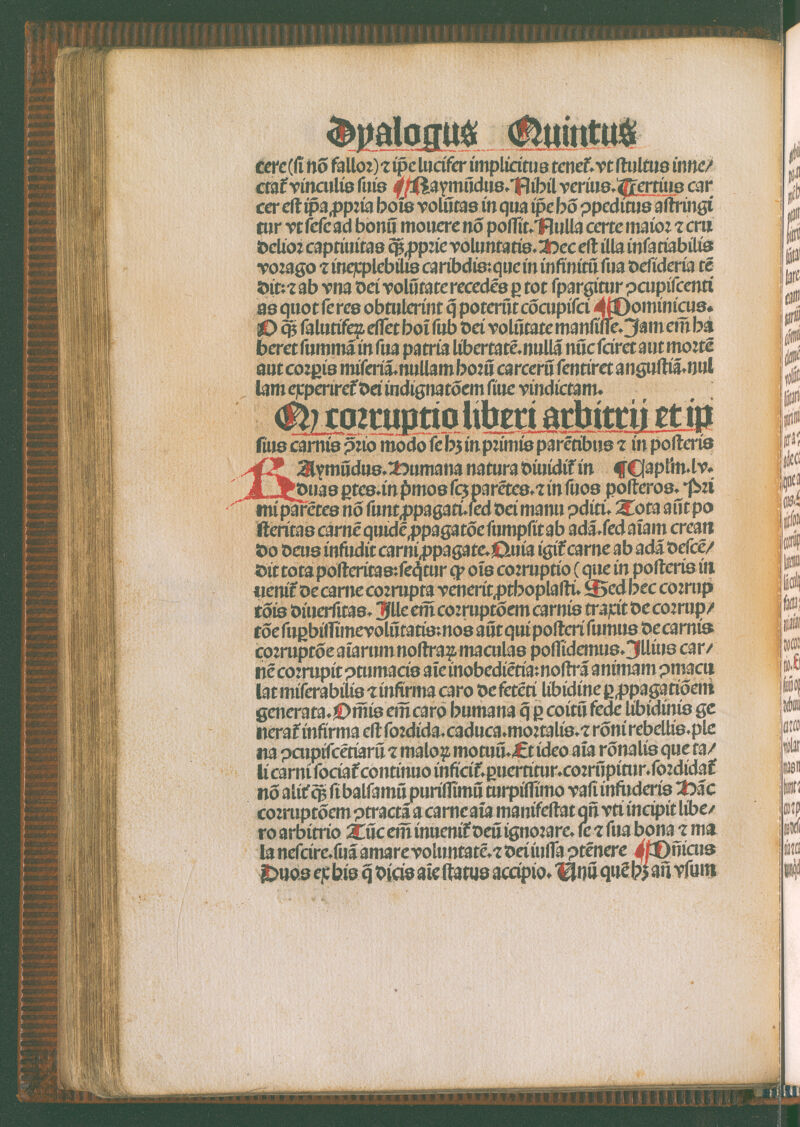 Dyalogus Quintus
cere(ſi nõ fallor) ⁊ ip̃e lucifer implicitus tenet᷑. vt ſtultus inne⸗
ctat᷑ vinculis ſuis ¶ Raymũdus. Nihil verius. Tertius car
cer eſt ip̃a ꝓpria hoĩs volũtas in qua ip̃e hõ ꝯpeditus aſtringi
tur vt ſeſe ad bonũ mouere nõ poſſit. Nulla certe maior ⁊ cru
delior captiuitas q̃ꝫ ꝓprie voluntatis. Hec eſt illa inſatiabilis
vorago ⁊ inexplebilis caribdis: que in infinitũ ſua deſideria tẽ
dit: ⁊ ab vna dei volũtate recedẽs ꝑ tot ſpargitur ꝯcupiſcenti
as quot ſe res obtulerint q̃ poterũt cõcupiſci ¶ Dominicus.
O q̃ꝫ ſalutifeꝝ eſſet hoĩ ſub dei volũtate manſiſſe. Jam em̃ ha
beret ſummã in ſua patria libertatẽ. nullã nũc ſciret aut mortẽ
aut corꝑis miſeriã. nullam horũ carcerũ ſentiret anguſtiã. nul
lam experiret᷑ dei indignatõem ſiue vindictam.
Q corruptio liberi arbitrij et ip
ſius carnis ꝯ̃rio modo ſe hꝫ in primis parẽtibus ⁊ in poſteris
RAymũdus. Humana natura diuidit᷑ in ¶ Capl'm. lv.
duas ꝑtes. in p̃mos ſcꝫ parẽtes. ⁊ in ſuos poſteros. Pri
mi parẽtes nõ ſunt ꝓpagati. ſed dei manu ꝯditi. Tota aũt po
ſteritas carnẽ quidẽ ꝓpagatõe ſumpſit ab adã. ſed aĩam crean
do deus infudit carni ꝓpagate. Quia igit᷑ carne ab adã deſcẽ⸗
dit tota poſteritas: ſeq̃tur ꝙ oĩs corruptio (que in poſteris in
uenit᷑ de carne corrupta venerit ꝓthoplaſti. Sed hec corrup
tõis diuerſitas. Jlle em̃ corruptõem carnis traxit de corrup⸗
tõe ſuꝑbiſſime volũtatis: nos aũt qui poſteri ſumus de carnis
corruptõe aĩarum noſtraꝝ maculas poſſidemus. Jllius car⸗
nẽ corrupit ꝯtumacis aĩe inobediẽtia: noſtrã animam ꝯmacu
lat miſerabilis ⁊ infirma caro de fetẽti libidine ꝑ ꝓpagatiõem
generata. Om̃is em̃ caro humana q̃ ꝑ coitũ fede libidinis ge
nerat᷑ infirma eſt ſordida. caduca. mortalis. ⁊ rõni rebellis. ple
na ꝯcupiſcẽtiarũ ⁊ maloꝝ motuũ. Et ideo aĩa rõnalis que ta⸗
li carni ſociat᷑ continuo inficit᷑. ꝑuertitur. corrũpitur. ſordidat᷑
nõ alit᷑ q̃ꝫ ſi balſamũ puriſſimũ turpiſſimo vaſi infuderis Hãc
corruptõem ꝯtractã a carne aĩa manifeſtat qñ vti incipit libe⸗
ro arbitrio Tũc em̃ inuenit᷑ deũ ignorare. ſe ⁊ ſua bona ⁊ ma
la neſcire. ſuã amare voluntatẽ. ⁊ dei iuſſa ꝯtẽnere ¶ Dñicus
Duos ex his q̃ dicis aĩe ſtatus accipio. Unũ quẽ hꝫ añ vſum